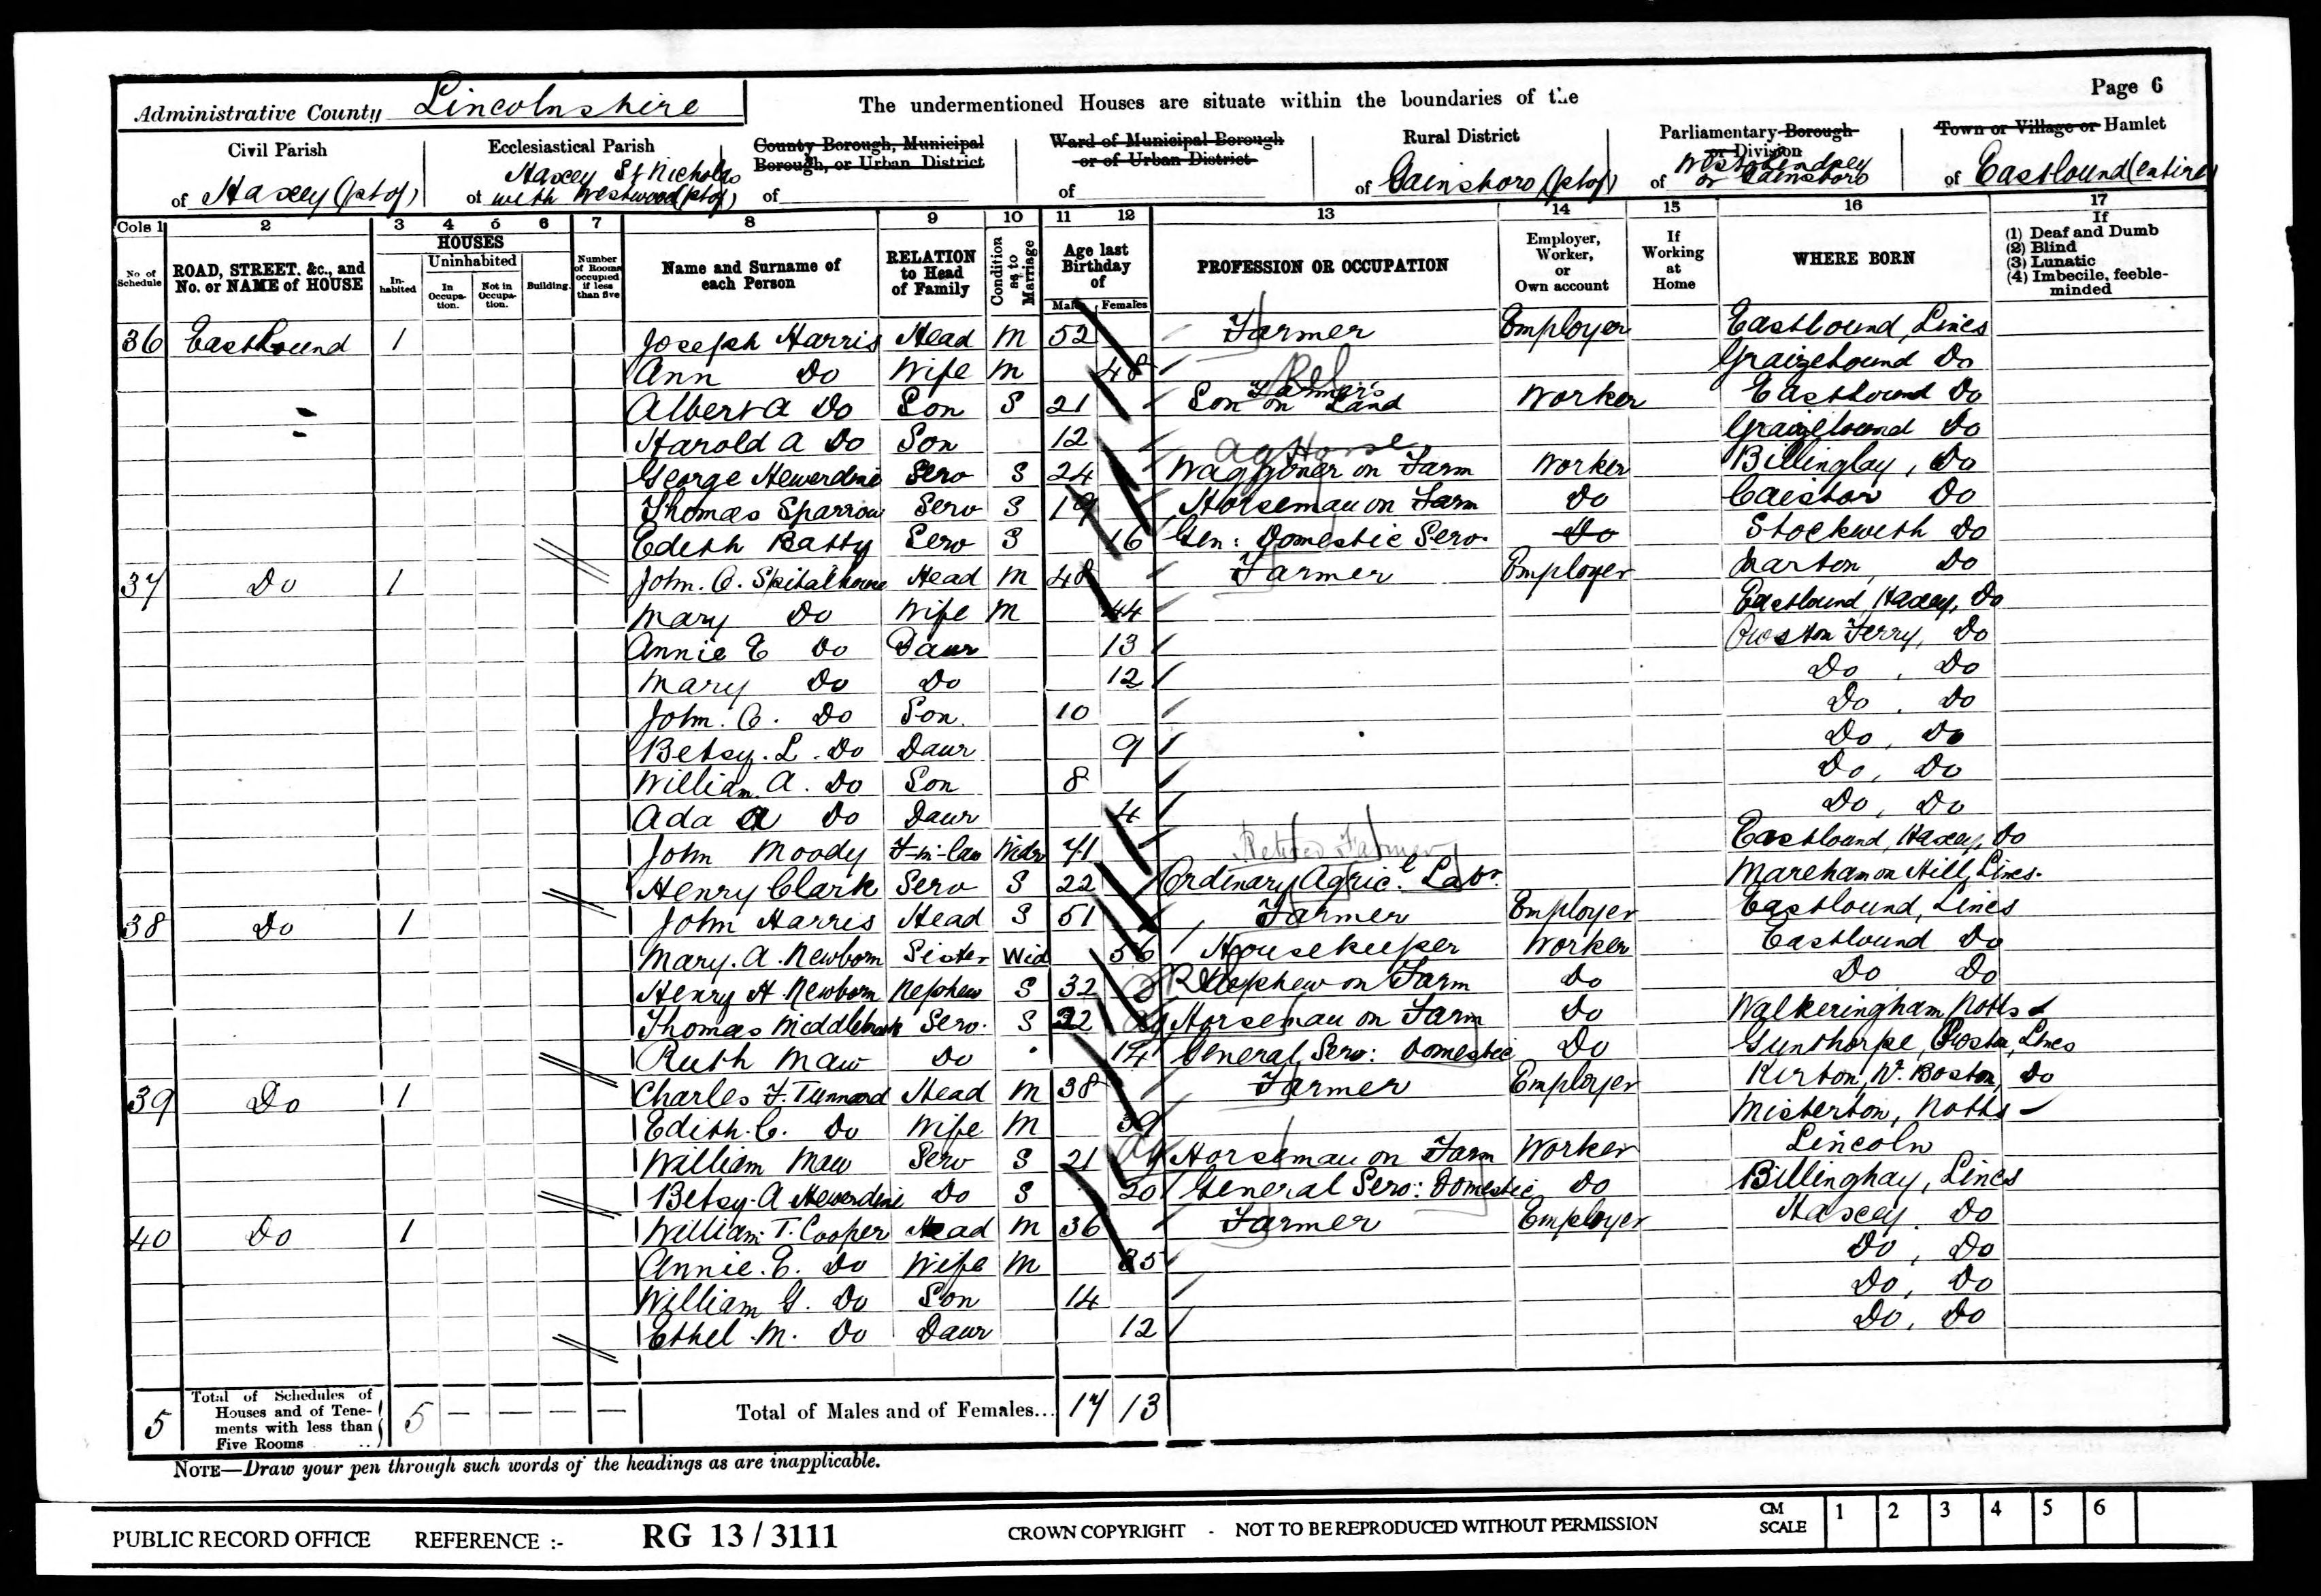 Page 6
Administrative County Lincolnshire The undermentioned Houses are situate within the boundaries of the
Civil Parish of Haxey (pt of)
Ecclesiastical Parish of Haxey St Nicholas with Westwood (pt of)
County Borough, Municipal Borough, or Urban District of
Ward of Municipal Borough or of Urban District of
Rural District of Gainsboro (pt of)
Parliamentary Borough or Division of W. Lindsey or Gainsboro
Town or Village or Hamlet of Eastlound (entire)
Cols 1 2 3 4 5 6 7 8 9 10 11 12 13 14 15 16 17
No of Schedule
ROAD, STREET. &c., and No. or NAME of HOUSE
HOUSES
In-habited
Uninhabited
In Occupa-tion.
Not in Occupa-tion.
Building.
Number of Rooms occupied if less than five
Name and Surname of each Person
RELATION to Head of Family
Condition as to Marriage
Age last Birthday of
Males Females
PROFESSION OR OCCUPATION
Employer, Worker, or Own account
If Working at Home
WHERE BORN
If
(1) Deaf and Dumb
(2) Blind
(3) Lunatic
(4) Imbecile, feeble-minded
36 Eastlound 1 Joseph Harris Head M 52 Farmer Employer Eastlound, Lincs
Ann Do Wife M 48 Graizelound Do
Albert A Do Son S 21 Rel Farmer's Son on Land Worker Eastlound Do
Harold A Do Son 12 Graizelound Do
George Hewerdine Serv S 24 Ag Horse Waggoner on Farm Worker Billinghay, Do
Thomas Sparrow Serv S 19 Horseman on Farm Do Caistor Do
Edith Batty Serv S 16 Gen: Domestic Serv. Do Stockwith Do
37 Do 1 John. C. Head M 48 Farmer Employer Marton, Do
Mary Do Wife M 44 Eastlound, Haxey, Do
Annie E Do Daur 13 Owston Ferry, Do
Mary Do Do 12 Do, Do
John. C. Do Son. 10 Do, Do
Betsy. L. Do Daur 9 Do, Do
William. A. Do Son 8 Do, Do
Ada A Do Daur 4 Do, Do
John Moody F-in-law Widr 71 Retired Farmer Eastlound, Haxey, Do
Henry Clark Serv S 22 Ordinary Agric.l Labr. Mareham on Hill, Lincs.
38 Do 1 John Harris Head S 51 Farmer Employer Eastlound, Lincs
Mary. A. Newborn Sister Wid 56 Housekeeper Worker Eastlound Do
Henry H. Newborn Nephew S 32 Rel Nephew on Farm Do Do Do
Thomas Middlebrook Serv. S 22 Ag Horseman on Farm Do Walkeringham Notts
Ruth Maw Do 14 General Serv: Domestic Do Gunthorpe, Owston, Lincs
39 Do 1 Charles F. Tunnard Head M 38 Farmer Employer Kirton, Nr. Boston, Do
Edith. C. Do Wife M 39 Misterton, Notts
William Maw Serv S 21 Ag Horseman on Farm Worker Lincoln
Betsy. A Hewerdine Do S 20 General Serv: Domestic Do Billinghay, Lincs
40 Do 1 William T. Cooper Head M 36 Farmer Employer Haxey, Do
Annie. E. Do Wife M 35 Do, Do
William G. Do Son 14 Do, Do
Ethel. M. Do Daur 12 Do, Do
5 Total of Schedules of Houses and of Tenements with less than Five Rooms .. 5 — — — — Total of Males and of Females... 17 13
NOTE—Draw your pen through such words of the headings as are inapplicable.
PUBLIC RECORD OFFICE REFERENCE :- RG 13 / 3111 CROWN COPYRIGHT - NOT TO BE REPRODUCED WITHOUT PERMISSION CM SCALE 1 2 3 4 5 6